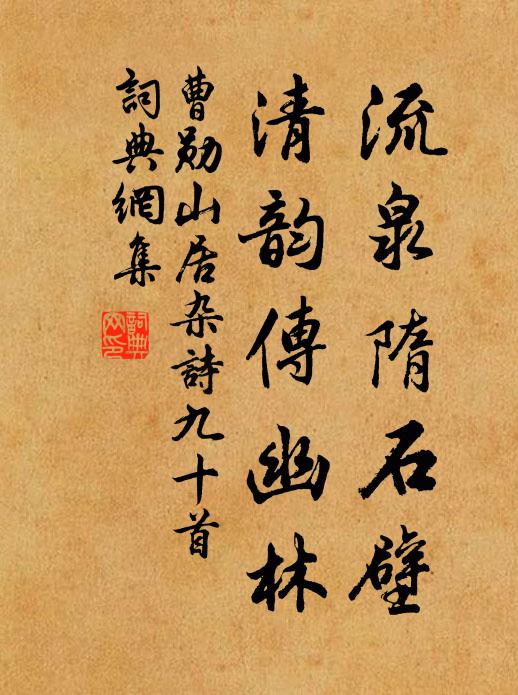 流泉隋石壁
清韵傳幽林
曹勋山居杂詩九十首
詞典網集
詞典网印